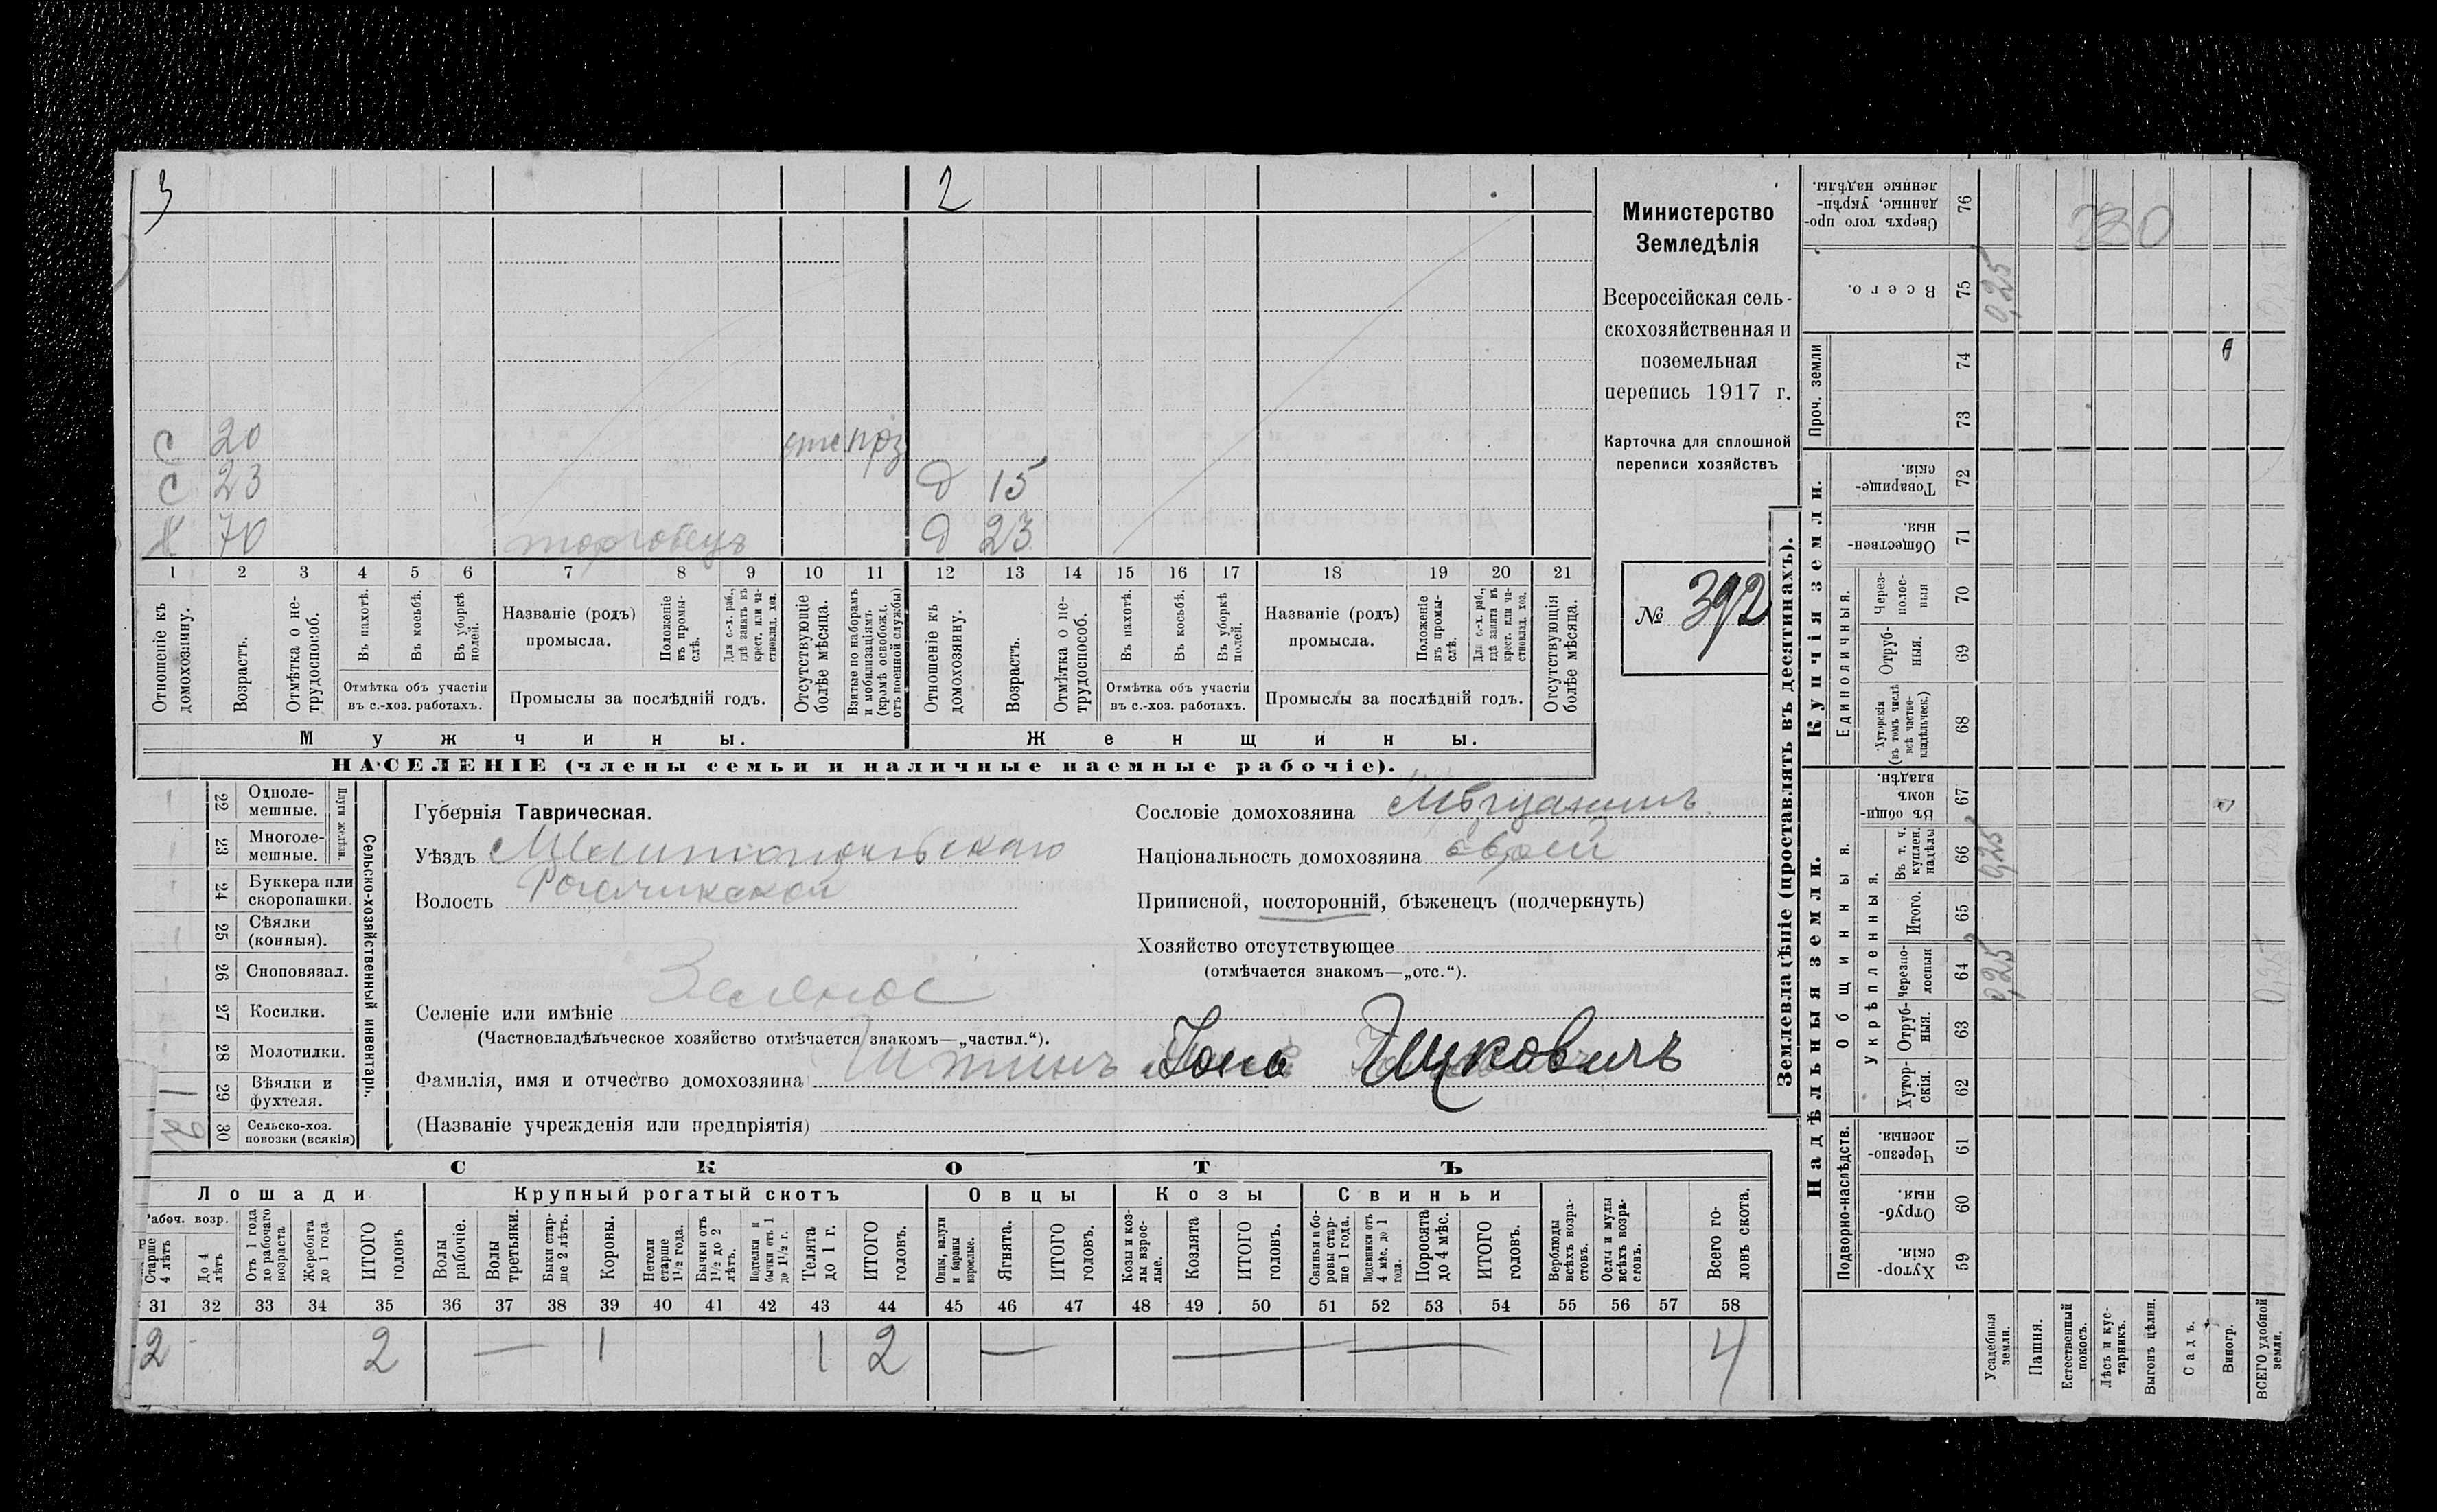 3 2
С 20 пр.
С 23 д 15
Х 70 торговецъ д 23
1 2 3 4 5 6 7 8 9 10 11 12 13 14 15 16 17 18 19 20 21
Отношеніе къ домохозяину.
Возрастъ.
Отмѣтка о нетрудоспособ.
Въ пахотѣ.
Въ косьбѣ.
Въ уборкѣ полей.
Отмѣтка объ участіи въ с.-хоз. работахъ.
Названіе (родъ) промысла.
Положеніе въ промыслѣ.
Для с.-х. раб., гдѣ занятъ въ крест. или частновлад. хоз.
Промыслы за послѣдній годъ.
Отсутствующіе болѣе мѣсяца.
Взятые по наборамъ и мобилизаціямъ (кромѣ освобожд. отъ военной службы)
Отношеніе къ домохозяину.
Возрастъ.
Отмѣтка о нетрудоспособ.
Въ пахотѣ.
Въ косьбѣ.
Въ уборкѣ полей.
Отмѣтка объ участіи въ с.-хоз. работахъ.
Названіе (родъ) промысла.
Положеніе въ промыслѣ.
Для с.-х. раб., гдѣ занята въ крест. или частновлад. хоз.
Промыслы за послѣдній годъ.
Отсутствующія болѣе мѣсяца.
Мужчины. Женщины.
НАСЕЛЕНІЕ (члены семьи и наличные наемные рабочіе).
Министерство
Земледѣлія
Всероссійская сель-
скохозяйственная и
поземельная
перепись 1917 г.
Карточка для сплошной
переписи хозяйствъ
№ 392
22 Одноле-мешные.
23 Многоле-мешные.
24 Буккера или скоропашки.
25 Сѣялки (конныя).
26 Сноповязал.
27 Косилки.
28 Молотилки.
1 29 Вѣялки и фухтеля.
30 Сельско-хоз. повозки (всякія)
Сельско-хозяйственный инвентарь.
Губернія Таврическая.
Уѣздъ Мелитопольскаго
Волость Рогачикской
Селеніе или имѣніе Зеленое
(Частновладѣльческое хозяйство отмѣчается знакомъ—„частвл.“).
Фамилія, имя и отчество домохозяина Иткинъ Іона Ицковичъ
(Названіе учрежденія или предпріятія)
Сословіе домохозяина Мѣщанинъ
Національность домохозяина еврей
Приписной, посторонній, бѣженецъ (подчеркнуть)
Хозяйство отсутствующее
(отмѣчается знакомъ—„отс.“).
СКОТЪ
Лошади Крупный рогатый скотъ Овцы Козы Свиньи
Рабоч. возр.
Старше 4 лѣтъ
До 4 лѣтъ
Отъ 1 года до рабочаго возраста
Жеребята до 1 года
ИТОГО головъ
Волы рабочіе.
Волы третьяки.
Быки старше 2 лѣтъ.
Коровы.
Нетели старше 1½ года.
Бычки отъ 1½ до 2 лѣтъ.
Подтелки и бычки отъ 1 до 1½ г.
Телята до 1 г.
ИТОГО головъ.
Овцы, валухи и бараны взрослые.
Ягнята.
ИТОГО головъ.
Козы и козлы взрослые.
Козлята
ИТОГО головъ.
Свиньи и боровы старше 1 года.
Подсвинки отъ 4 мѣс. до 1 года.
Поросята до 4 мѣс.
ИТОГО головъ.
Верблюды всѣхъ возрастовъ.
Ослы и мулы всѣхъ возрастовъ.
Всего головъ скота.
31 32 33 34 35 36 37 38 39 40 41 42 43 44 45 46 47 48 49 50 51 52 53 54 55 56 57 58
2 - 2 — 1 1 2 — — — 4
Землевладѣніе (проставлять въ десятинахъ).
Купчія земли.
Надѣльныя земли.
Сверхъ того проданные, укрѣпленные надѣлы. 76
Всего. 75 0,25
Проч. земли 74 73
Товарищескія. 72
Общественныя. 71
Единоличныя.
Черезполосныя 70
Отрубныя. 69
Хуторскія (въ томъ числѣ всѣ частновладѣльческ.) 68
Общинныя.
Въ общинномъ владѣн. 67
укрѣпленныя.
Въ т. ч. куплен. надѣлы 66 0,25
Итого. 65
Черезполосныя 64 0,25
Отрубныя. 63
Хуторскія. 62
Подворно-наслѣдств.
Черезполосныя. 61
Отрубныя. 60
Хуторскія 59
Усадебныя земли.
Пашня.
Естественный покосъ.
Лѣсъ и кустарникъ.
Выгонъ цѣлин.
Садъ.
Виногр.
ВСЕГО удобной земли.